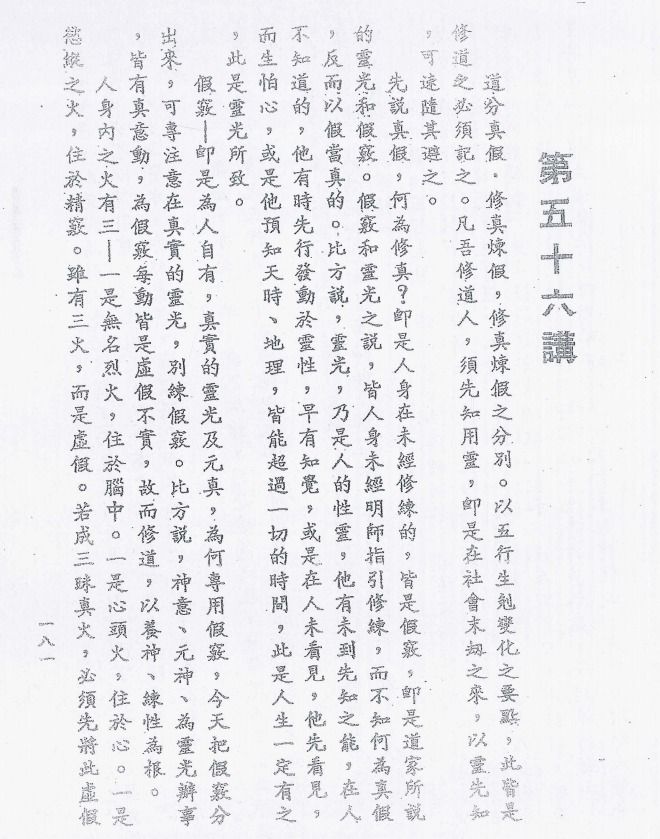 第五十六講
道分真假．修真煉假，修真煉假之分別。以五行生剋變化之要點，此皆是
修道之必須記之。凡吾修道人，須先知用靈，卽是在社會末劫之來，以靈先知
，可速隨其避之。
先說真假，何為修真？卽是人身在未經修練的，皆是假竅，卽是道家所說
的靈光和假竅。假竅和靈光之說，皆人身未經明師指引修練，而不知何為真假
，反而以假當真的。比方說，靈光，乃是人的性靈，他有未到先知之能，在人
不知道的，他有時先行發動於靈性，早有知覺，或是在人未看見，他先看見，
而生怕心，或是他預知天時、地理，皆能超過一切的時間，此是人生一定有之
，此是靈光所致。
假竅—卽是為人自有，真實的靈光及元真，為何專用假竅，今天把假竅分
出來，可專注意在真實的靈光，別練假竅。比方說，神意、元神、為靈光辦事
，皆有真意動，為假竅每動皆是虛假不實，故而修道，以養神、練性為根。
人身內之火有三—一是無名烈火，住於腦中。一是心頭火，住於心。一是
慾縱之火，住於精竅。雖有三火，而是虛假。若成三昧真火，必須先將此虛假
一八一